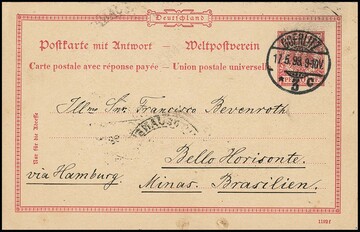 Deutschland
Postkarte mit Antwort — Weltpostverein
Carte postale avec réponse payée — Union postale universelle
GOERLITZ
17.5.98.9-10V.
* 3 C
Nur für die Adresse
Illmo Snr Francisco Bevenroth
Bello Horisonte.
via Hamburg. Minas. Brasilien.